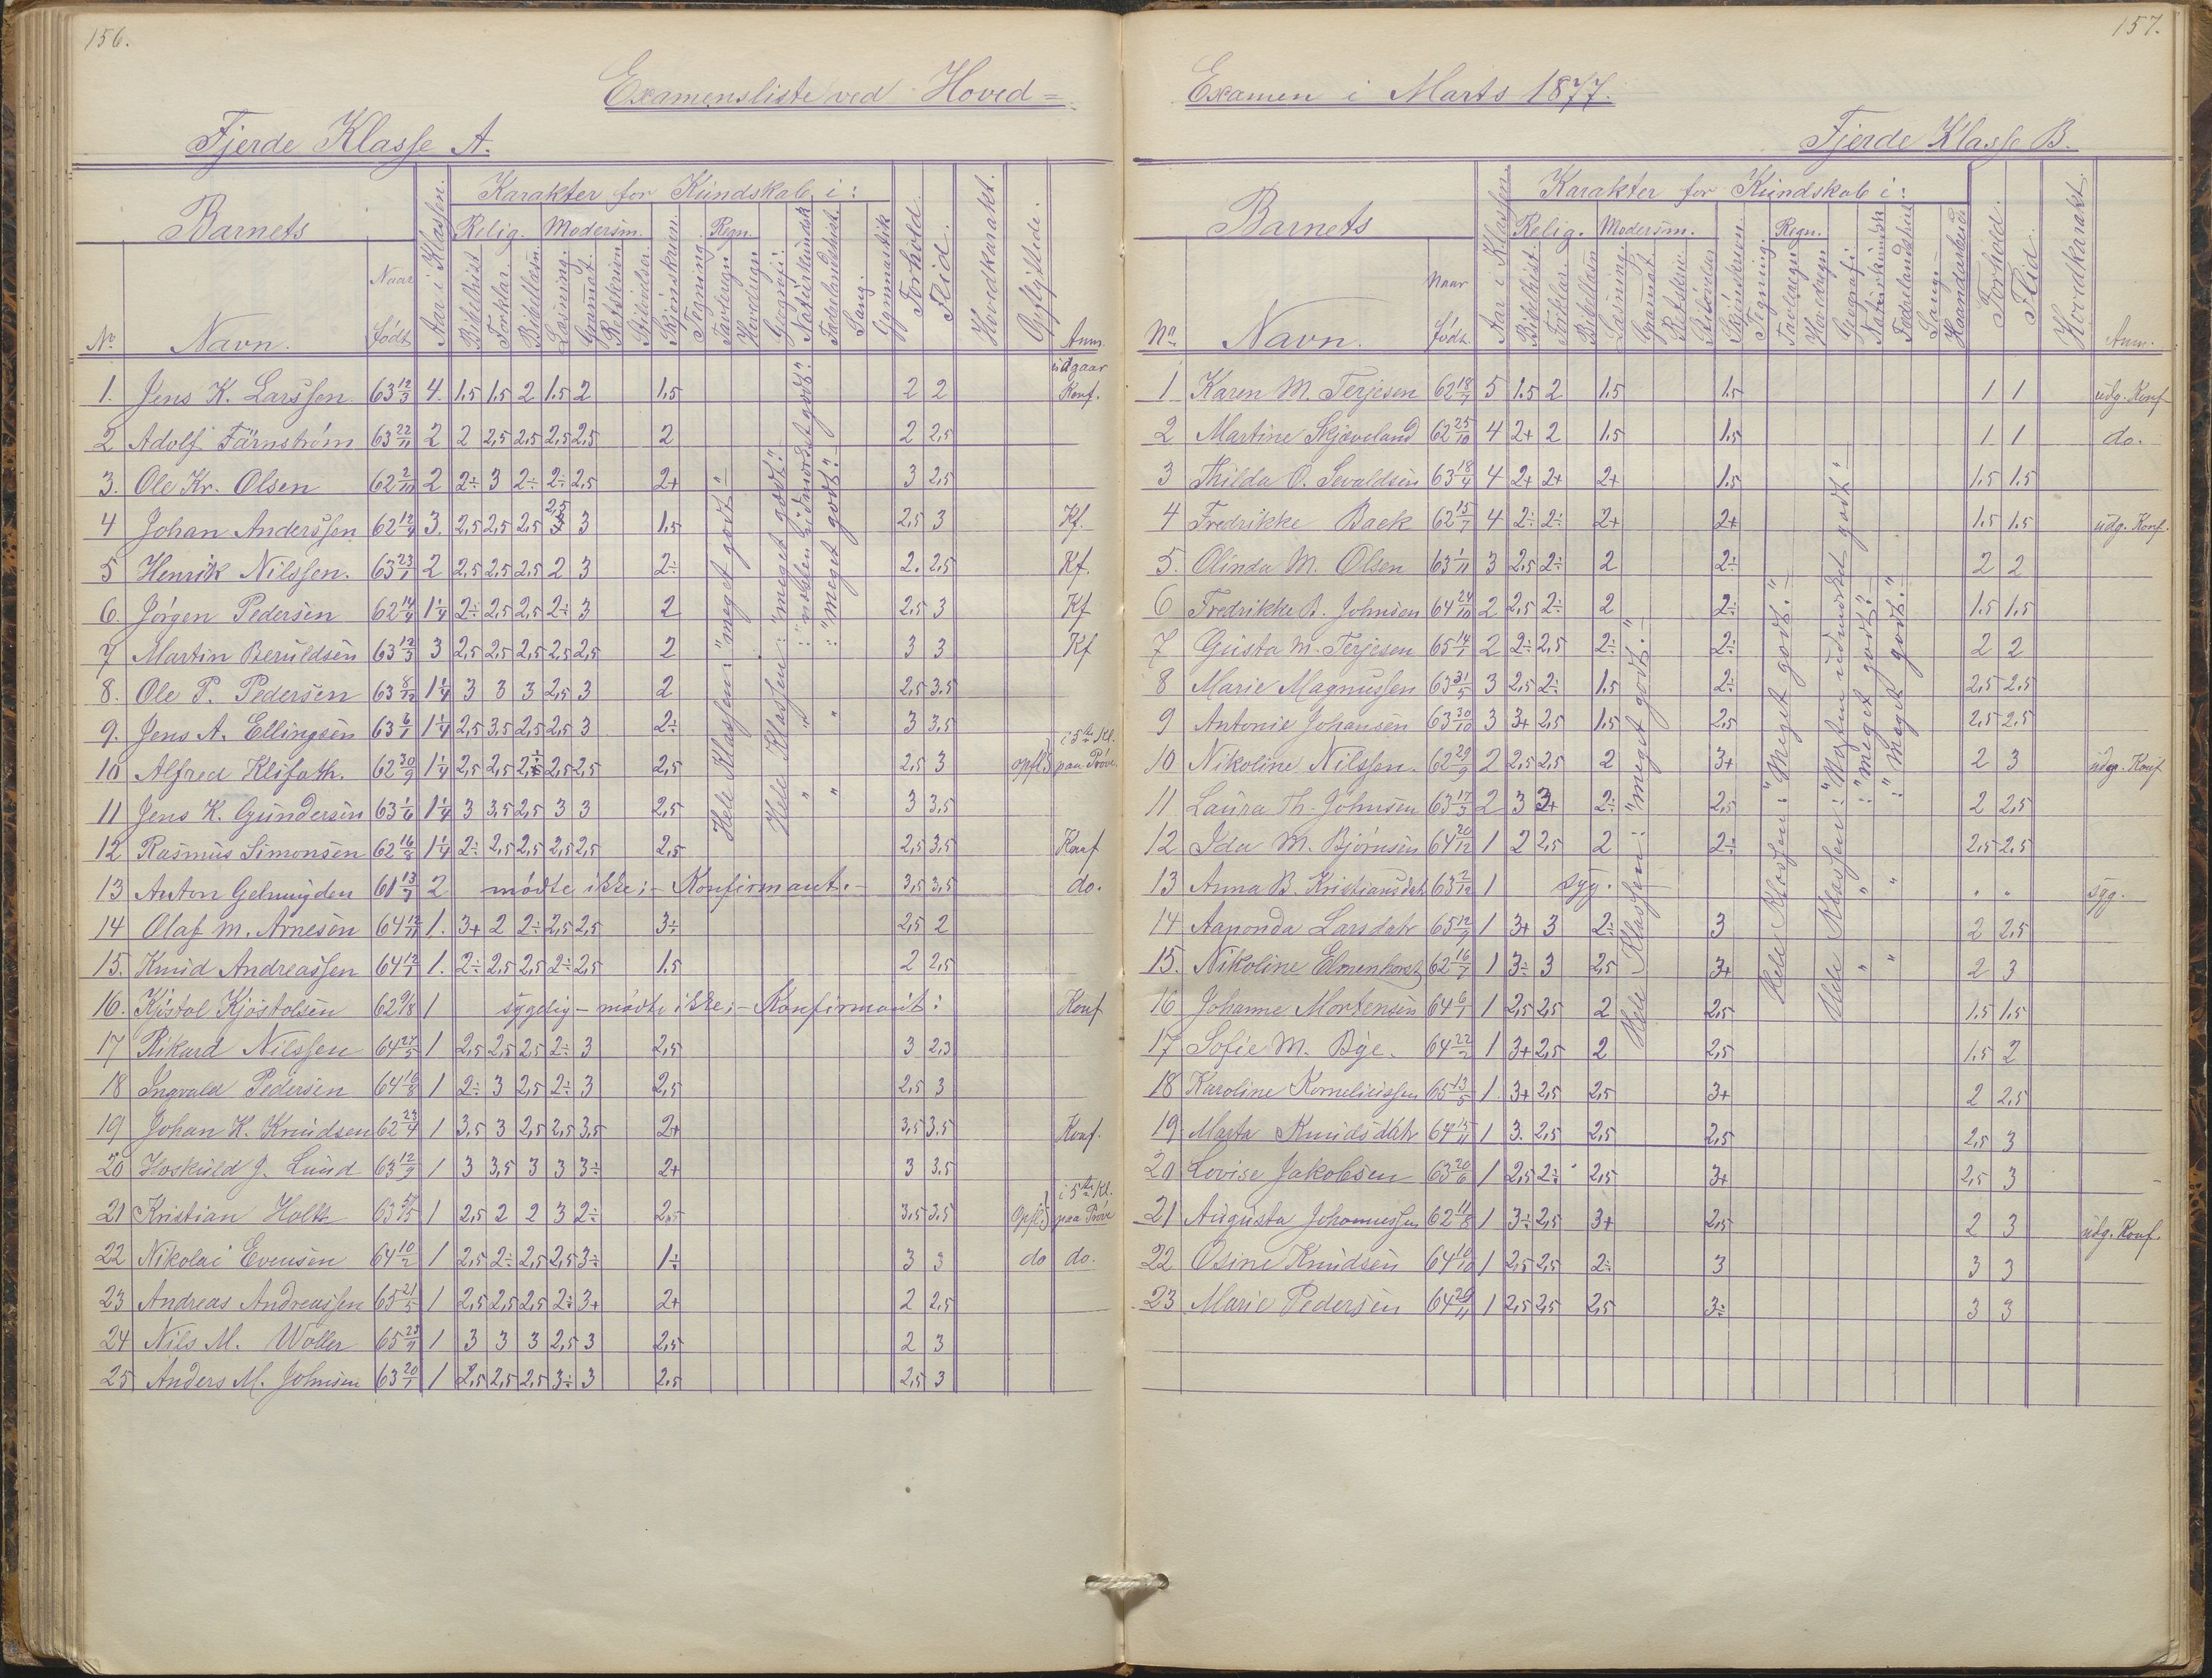 156.
Examensliste ved Hoved=
Fjerde Klasse A.
Barnets
Aar i Klassen.
Karakter for Kundskab i:
Relig. Modersm. Regn.
No Navn. Naar født
Bibelhist. Forklar. Bibellæsn. Læsning. Gramat. Retskrivn. Stiløvelser. Skjønskrivn. Tegning. Tavleregn. Hovedregn. Geografi. Naturkundsk. Fædrelandshist. Sang. Gymnastik Forhold. Flid. Hovedkarakt. Opflyttede. Anm.
1. Jens K. Larssen 63 12/3 4. 1.5 1.5 2 1.5 2 1.5 2 2 udgaar Konf.
2 Adolf Färnström 63 22/11 2 2 2,5 2,5 2,5 2,5 2 2 2,5
3. Ole Kr. Olsen 62 2/11 2 2÷ 3 2÷ 2÷ 2,5 2+ 3 2,5
4 Johan Anderssen 62 12/9 3. 2,5 2,5 2,5 2,5 3 1.5 2,5 3 Kf.
5 Henrik Nilssen. 63 23/1 2 2,5 2,5 2,5 2 3 2÷ 2. 2,5 Kf.
6. Jørgen Pedersen 62 14/9 1 1/4 2÷ 2,5 2,5 2÷ 3 2 2,5 3 Kf
7 Martin Beruldsen 63 12/3 3 2,5 2,5 2,5 2,5 2,5 2 3 3 Kf
8. Ole P. Pedersen 63 8/12 1 1/4 3 3 3 2,5 3 2 2,5 3.5
9. Jens A. Ellingsen 63 6/1 1 1/4 2,5 3,5 2,5 2,5 3 2÷ 3 3,5
10 Alfred Klifath. 62 30/9 1 1/4 2,5 2,5 2÷ 2,5 2,5 2,5 2,5 3 opfl. i 5te Kl. paa Prøve.
11 Jens K. Gundersen 63 1/6 1 1/4 3 3,5 2,5 3 3 2,5 3 3,5
12 Rasmus Simonsen 62 16/8 1 1/4 2÷ 2,5 2,5 2,5 2,5 2,5 2,5 3,5 Konf
13 Anton Gelmuyden 61 13/7 2 mødte ikke; – Konfirmant. – 3,5 3,5 do.
14 Olaf M. Arnesen 64 12/11 1. 3+ 2 2÷ 2,5 2,5 3÷ 2,5 2
15. Knud Andreassen 64 12/1 1. 2÷ 2,5 2,5 2÷ 2,5 1.5 2 2,5
16. Kistol Kjøstolsen 62 9/8 1 sygelig – mødte ikke; – Konfirmant: Konf
17 Rikard Nilssen 64 27/5 1 2,5 2,5 2,5 2÷ 3 2,5 3 2,3
18 Ingvald Pedersen 64 16/8 1 2÷ 3 2,5 2÷ 3 2,5 2,5 3
19 Johan K. Knudsen 62 23/4 1 3,5 3 2,5 2,5 3,5 2+ 3,5 3.5 Konf.
20 Hoskuld J. Lund 63 12/9 1 3 3,5 3 3 3÷ 2+ 3 3.5
21 Kristian Holth 63 1 2,5 2 2 3 2÷ 2,5 3,5 3,5 Opfl. i 5te Kl. paa Prøve
22 Nikolai Evensen 64 10/2 1 2,5 2÷ 2,5 2,5 3÷ 1÷ 3 3 do do.
23 Andreas Andreassen 65 21/5 1 2,5 2,5 2,5 2÷ 3+ 2+ 2 2,5
24 Nils M. Woller 65 23/9 1 3 3 3 2,5 3 2,5 2 3
25 Anders M. Johnsen 63 20/1 1 2,5 2,5 2,5 3÷ 3 2,5 2,5 3
Hele Klassen: "meget godt". –
Hele Klassen: "meget godt". –
" " : "næsten udmærket godt".
" " : "meget godt". –
157.
Examen i Marts 1877.
Fjerde Klasse B.
Barnets
Aar i Klassen.
Karakter for Kundskab i:
Relig. Modersm. Regn.
No Navn. Naar født.
Bibelhist. Forklar. Bibellæsn Læsning. Gramat. Retskriv. Stiløvelser Skjønskrivn. Tegning. Tavleregn Hovedregn Geografi. Naturkundsk Fædrelandshist Sang. Haandarbeide Forhold. Flid. Hovedkarakt. Anm.
1 Karen M. Terjesen 62 18/7 5 1.5 2 1.5 1.5 1 1 udg. Konf
2 Martine Skjæveland 62 25/10 4 2+ 2 1.5 1.5 1 1 do.
3 Thilda O. Sevaldsen 63 18/4 4 2+ 2+ 2+ 1.5 1.5 1.5
4 Fredrikke Back 62 15/7 4 2÷ 2÷ 2+ 2+ 1.5 1.5 udg. Konf.
5. Olinda M. Olsen 63 1/11 3 2,5 2÷ 2 2÷ 2 2
6 Fredrikke B. Johnsen 64 24/10 2 2,5 2÷ 2 2÷ 1.5 1.5
7 Gusta M. Terjesen 65 14/1 2 2÷ 2,5 2÷ 2÷ 2 2
8 Marie Magnussen 63 31/5 3 2,5 2÷ 1.5 2÷ 2,5 2,5
9 Antonie Johansen 63 30/10 3 3+ 2,5 1.5 2,5 2,5 2,5
10 Nikoline Nilssen. 62 29/9 2 2,5 2,5 2 3+ 2 3 udg. Konf
11 Laura Th. Johnsen 63 17/3 2 3 3+ 2÷ 2,5 2 2,5
12 Ida M. Bjørnsen 64 20/12 1 2 2,5 2 2÷ 2,5 2,5
13 Anna B. Kristiansdatr 63 2/12 1 syg. " " syg.
14 Aanonda Larsdatr 65 12/9 1 3+ 3 2÷ 3 2 2,5
15. Nikoline Elmenhorst 62 16/7 1 3÷ 3 2,5 3+ 2 3
16 Johanne Mortensen 64 6/1 1 2,5 2,5 2 2,5 1.5 1.5
17 Sofie M. Bye. 64 22/2 1 3+ 2,5 2 2,5 1.5 2
18 Karoline Korneliussen 65 13/5 1. 3+ 2,5 2,5 3+ 2 2,5
19 Marta Knudsdatr 64 15/11 1 3. 2,5 2,5 2,5 2,5 3
20 Lovise Jakobsen 63 20/6 1 2,5 2÷ 2,5 3+ 2,5 3
21 Augusta Johannessen 62 11/8 1 3÷ 2,5 3+ 2,5 2 3 udg. Konf.
22 Osine Knudsen 64 10/10 1 2,5 2,5 2÷ 3 3 3
23 Marie Pedersen 64 29/11 1 2,5 2,5 2,5 3÷ 3 3
Hele Klassen: "meget godt. – "
Hele Klassen: "Meget godt. " –
Hele Klassen: "Næsten udmærket godt". –
" " : "meget godt". –
" " : "Meget godt. " –